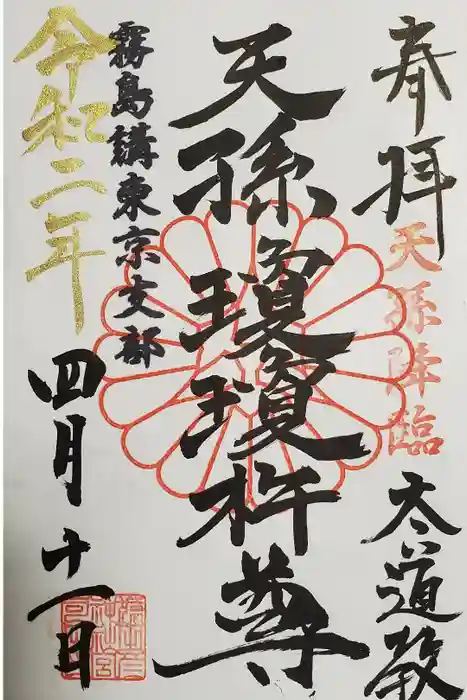 奉拝
天孫降臨
大道教
天孫瓊瓊杵尊
霧島講東京支部
令和二年
四月十一日